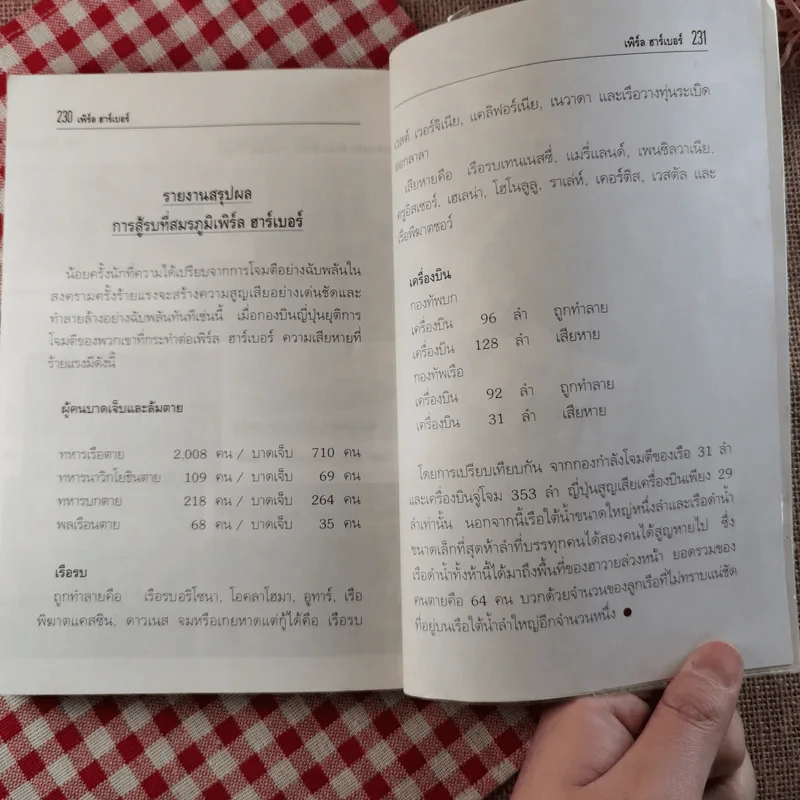 230 เพิร์ล ฮาร์เบอร์
รายงานสรุปผล
การสู้รบที่สมรภูมิเพิร์ล ฮาร์เบอร์
น้อยครั้งนักที่ความได้เปรียบจากการโจมตีอย่างฉับพลันใน
สงครามครั้งร้ายแรงจะสร้างความสูญเสียอย่างเด่นชัดและ
ทำลายล้างอย่างฉับพลันทันทีเช่นนี้ เมื่อกองบินญี่ปุ่นยุติการ
โจมตีของพวกเขาที่กระทำต่อเพิร์ล ฮาร์เบอร์ ความเสียหายที่
ร้ายแรงมีดังนี้
ผู้คนบาดเจ็บและล้มตาย
ทหารเรือตาย 2,008 คน / บาดเจ็บ 710 คน
ทหารนาวิกโยธินตาย 109 คน / บาดเจ็บ 69 คน
ทหารบกตาย 218 คน / บาดเจ็บ 264 คน
พลเรือนตาย 68 คน / บาดเจ็บ 35 คน
เรือรบ
ถูกทำลายคือ เรือรบอริโซนา, โอคลาโฮมา, อูทาร์, เรือ
พิฆาตแคสซิน, ดาวเนส จมหรือเกยหาดแต่กู้ได้คือ เรือรบ
เพิร์ล ฮาร์เบอร์ 231
เวสต์ เวอร์จิเนีย, แคลิฟอร์เนีย, เนวาดา และเรือวางทุ่นระเบิด
ออกลาลา
เสียหายคือ เรือรบเทนเนสซี่, แมรี่แลนด์, เพนซิลวาเนีย,
ครูอิสเซอร์, เฮเลน่า, โฮโนลูลู, ราเล่ห์, เคอร์ติส, เวสตัล และ
เรือพิฆาตชอว์
เครื่องบิน
กองทัพบก
เครื่องบิน 96 ลำ ถูกทำลาย
เครื่องบิน 128 ลำ เสียหาย
กองทัพเรือ
เครื่องบิน 92 ลำ ถูกทำลาย
เครื่องบิน 31 ลำ เสียหาย
โดยการเปรียบเทียบกัน จากกองกำลังโจมตีของเรือ 31 ลำ
และเครื่องบินจู่โจม 353 ลำ ญี่ปุ่นสูญเสียเครื่องบินเพียง 29
ลำเท่านั้น นอกจากนี้เรือใต้น้ำขนาดใหญ่หนึ่งลำและเรือดำน้ำ
ขนาดเล็กที่สุดห้าลำที่บรรทุกคนได้สองคนได้สูญหายไป ซึ่ง
เรือดำน้ำทั้งห้านี้ได้มาถึงพื้นที่ของฮาวายล่วงหน้า ยอดรวมของ
คนตายคือ 64 คน บวกด้วยจำนวนของลูกเรือที่ไม่ทราบแน่ชัด
ที่อยู่บนเรือใต้น้ำลำใหญ่อีกจำนวนหนึ่ง ●